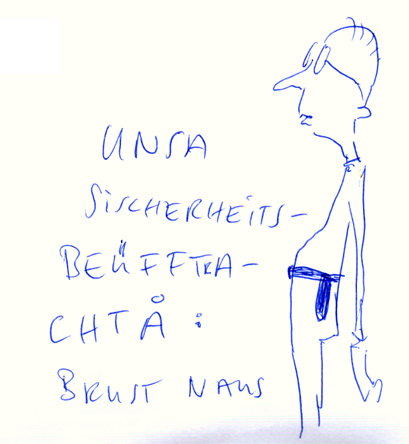 UNSA
SiSCHERHEiTS-
BEÜFFTRA-
CHTÅ:
BRUST NAUS